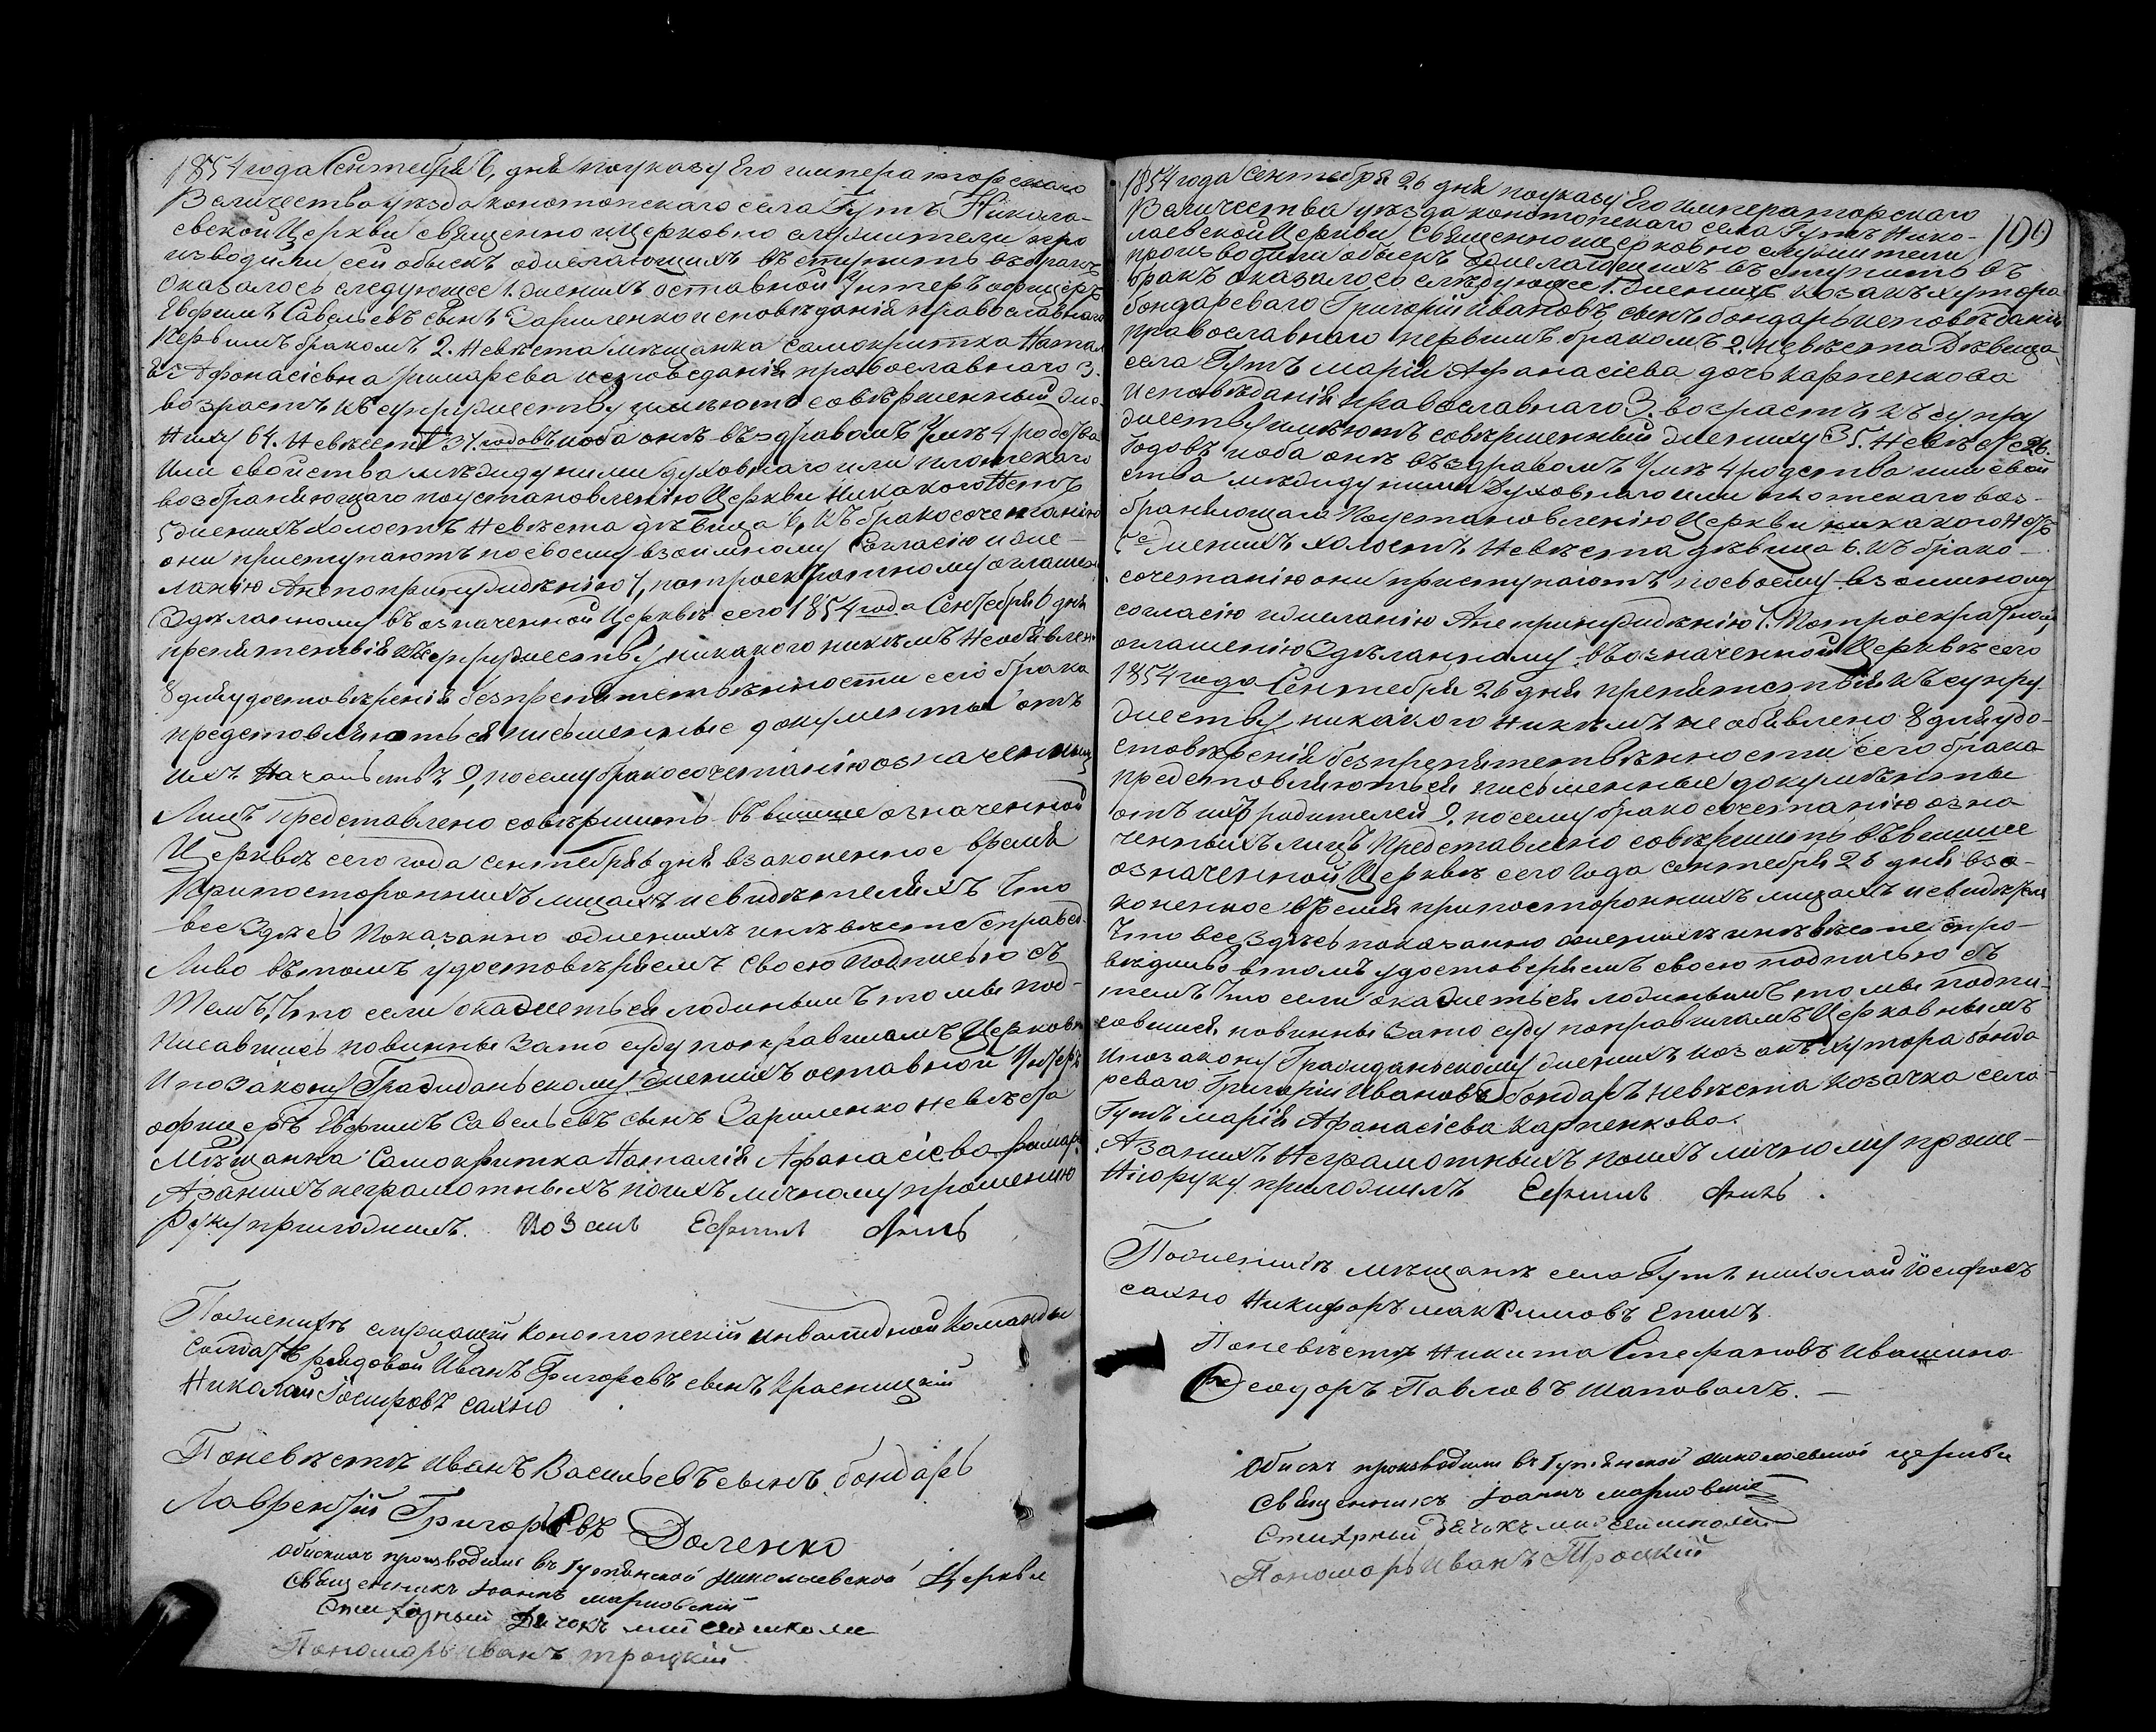 1854 года Сентебря 6, дня поуказу Его императорскаго
Величества уезда конотопскаго села Гутъ Никола-
евской Церкви священно ицерковно служители про
изводили сей обыскъ ожелающихъ въступить вбракъ
Оказалось следующее 1. Женихъ оставной Унтеръ офицеръ
Евфимъ Савельевъ сынъ исповѣданія православнаго
Первымъ бракомъ 2. Невѣста мѣщанка Самокритка Натал
Афонасіевна исповеданія православнаго 3.
возрастъ къ супружеству имѣютъ совѣршенный Же-
Ниху 64. Невѣсте 31. годовъ иоба онѣ въздравомъ Умѣ 4 родства
Или свойства мѣжду ними духовнаго или плотскаго
возбраняющаго поустановленію Церкви Никакого Нетъ
5 Женихъ холостъ Невѣста дѣвица 6, Къ бракосочетанію
они приступаютъ посвоему взаимному Согласію иже-
ланію Анепопринуждѣнію 7, потроекратному оглаше
Здѣланному въозначенной Церквѣ сего 1854 года Сентебря 6 дня
препятствія къ супружеству никакого никѣмъ Необявлен
8 дляудостовѣренія безпрепятствѣнности сего брака
предстовляютьсѣ письменные документы отъ
ихъ Начальствъ 9, посему бракосочетанію означенныхъ
Лицъ представлено совѣршить въвыше означенной
Церквѣ сего года сентебря 6 дня взаконенное время
Припосторонныхъ лицахъ исвидѣтеляхъ Что
все Здѣсь Показанно ожених инѣвѣсте справед
Ливо вътомъ удостовѣряемъ своею подписью съ
Темъ, Что если окажеться ложнымъ то мы под-
писавшись повинны Зато суду поправиламъ Церковн
Ипозакону Граждансьскому женихъ оставной Унтеръ
офицеръ Евфимъ Савельевъ сынъ невѣста
Мѣщанка Самокритка Наталія Афанасіева
Азанихъ неграмотныхъ поихъ личному прошению
Руку приложилъ. Козакъ Ефимъ
Поженихѣ служащей Конотопскій инвалидной Команды
Солдатъ рядовой Иванъ Григоровъ сынъ Красницкій
Николай Іосифовъ сахно
Поневѣстѣ Иванъ Васильевъ сынъ бондарь
Лаврентій Григорьевъ Доленко
Обыскъ производили въ Гутянской николаевской Церкви
Священникъ Іоаннъ марковскій
Стихарный Дячокъ
Пономарь Иванъ троцкій
100
1854 года Сентебря 26 дня поуказу Его Императорскаго
Величества уѣзда конотопскаго села Гутъ Нико-
лаевской Церкви Священно ицерковно служители
производили обыскъ ожелающихъ въступить въ
бракъ Оказалось слѣдующее 1. Женихъ козакъ хутора
бондареваго Григорій Ивановъ, сынъ бондарь исповѣданія
православнаго первымъ бракомъ 2. Невѣста Дѣвица
села Гутъ марія Афанасіева дочь карпенкова
Исповѣданія православнаго 3. возрастъ къ супру
жеству имѣютъ совѣршенный жениху 35. Невѣсте 26.
годовъ иоба онѣ въздравомъ Умѣ 4 родства или свой
ства мѣжду ними Духовнаго или плотскаго воз-
браняющаго Поустановленію Церкви никакого Нетъ
5 е Женихъ холостъ Невѣста дѣвица 6. къ брако-
сочетанію они приступаютъ посвоему взаимному
согласію ижеланію Анепринуждѣнію 7. Потроекратной
оглашенію Здѣланному въозначенной Церквѣ сего
1854 года Сентебря 26 дня препятствія къ супру
жеству никакого никѣмъ не обявлено 8 для удо-
стовѣренія безпрепятствѣнности сего брака
предстовляютьсѣ письменные докумѣнты
отъ ихъ родителей 9, посему бракосочетанію озна
ченныхъ лицъ Представлено совѣршить въвыше
означенной Церквѣ сего года сентебря 26 дня вза-
коненное время припосторонныхъ лицахъ исвидѣтеля
Что все здѣсь показанно оженихѣ инѣвѣсте спра-
вѣдливо втомъ удостоверяемъ своею подписью съ
темъ Что если окажеться ложнымъ то мы подпи-
савшися повинны Зато суду поправиламъ Церковнымъ
Ипозакону Граждансьскому женихъ козакъ хутора бонда
реваго Григорій Ивановъ бондарь невѣста козачка села
Гутъ марія Афанасіева Карпенкова.
Азанихъ Неграмотныхъ поихъ личному проше-
Нію руку приложилъ Ефимъ
Поженихѣ мѣщанъ села Гутъ николай Іосифовъ
сахно Никифоръ максимовъ Епикъ
Поневѣстѣ Никита Стефановъ Ивашина
Феодоръ Павловъ Шаповалъ. —
Обыскъ производили въ Гутянской николаевской церкви
Священникъ Іоаннъ марковскій
Стихарный Дячокъ
Пономарь Иванъ Троцкій